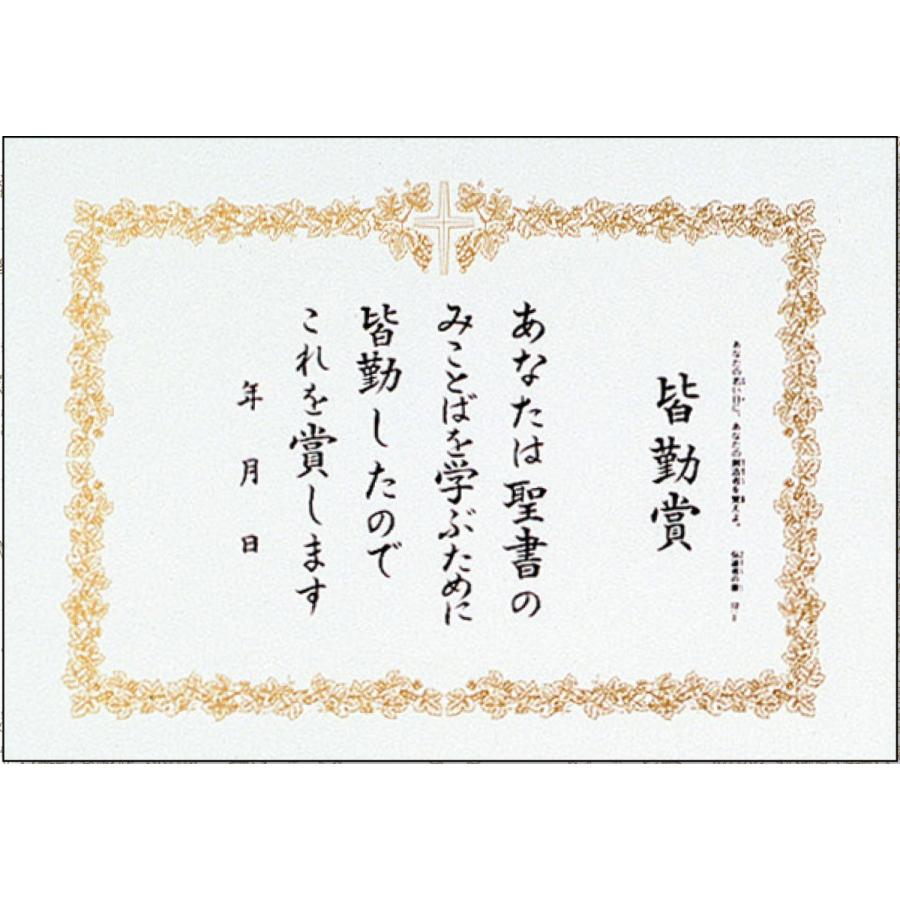 あなたの若い日に、あなたの創造者を覚えよ。 伝道者の書
皆勤賞
あなたは聖書の
みことばを学ぶために
皆勤したので
これを賞します
年 月 日